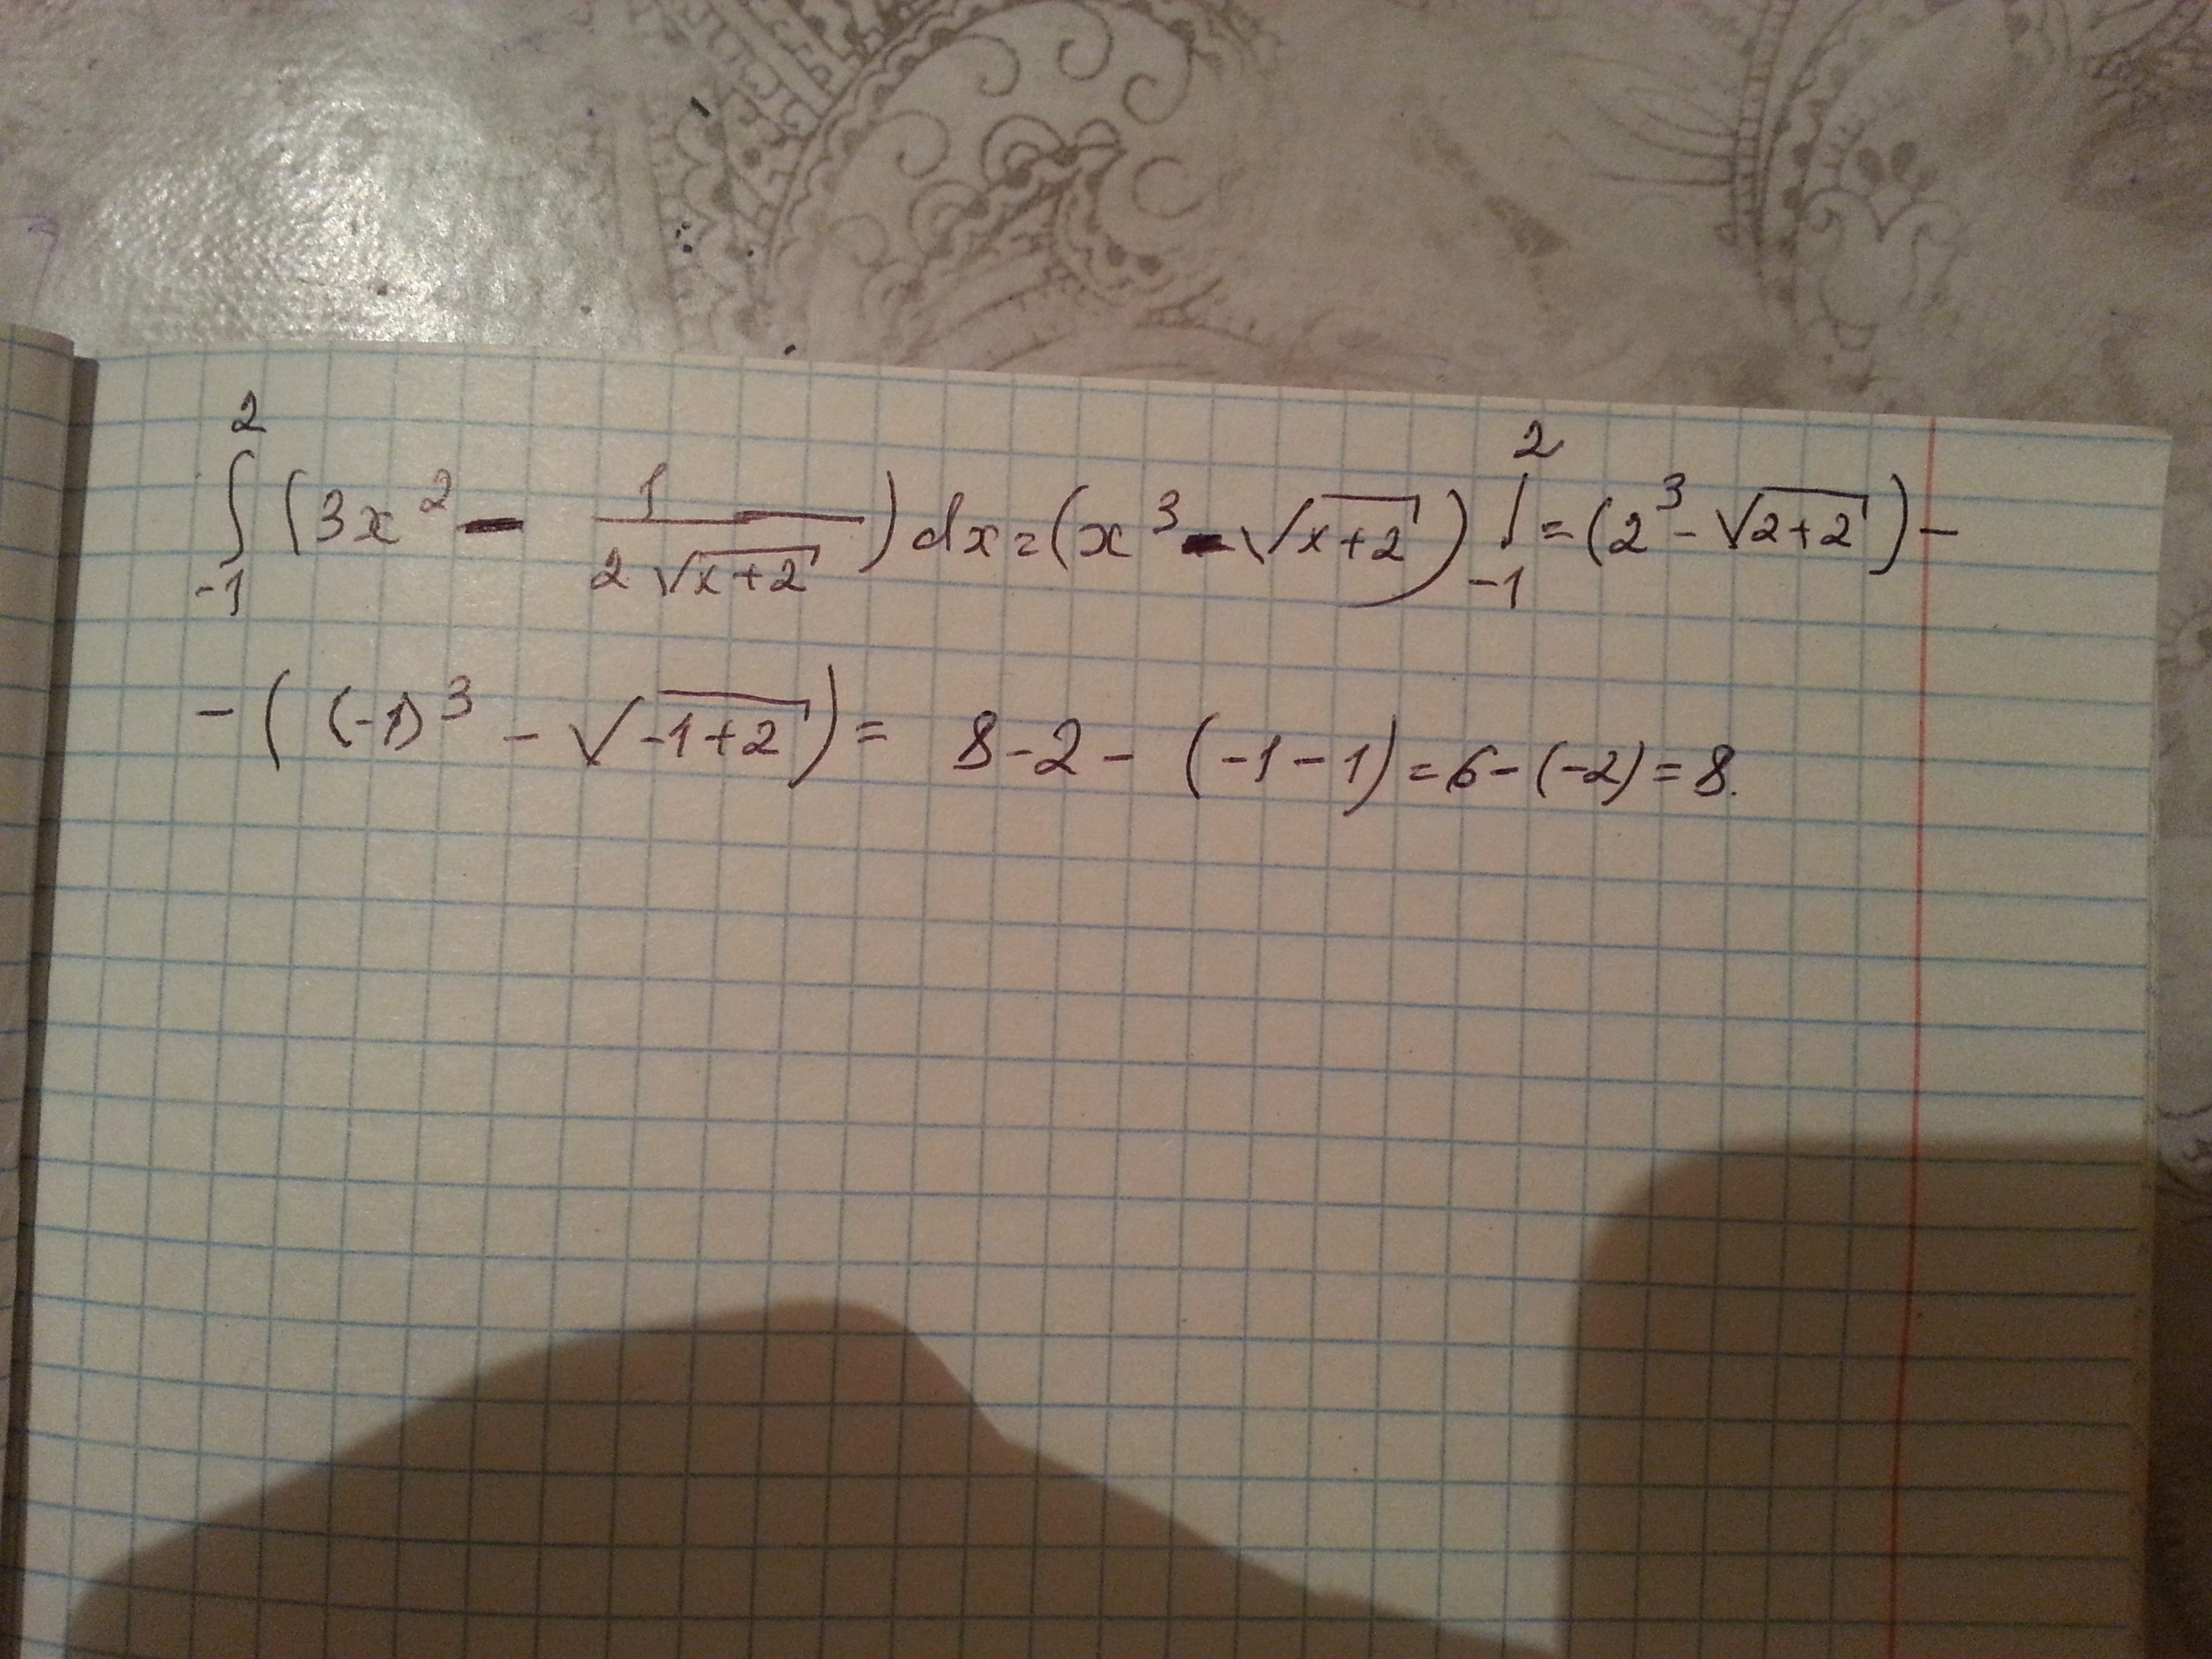 ∫_{-1}^{2} (3x² - 1/(2√(x+2))) dx = (x³ - √(x+2)) |_{-1}^{2} = (2³ - √(2+2)) -
- ((-1)³ - √(-1+2)) = 8 - 2 - (-1 - 1) = 6 - (-2) = 8.